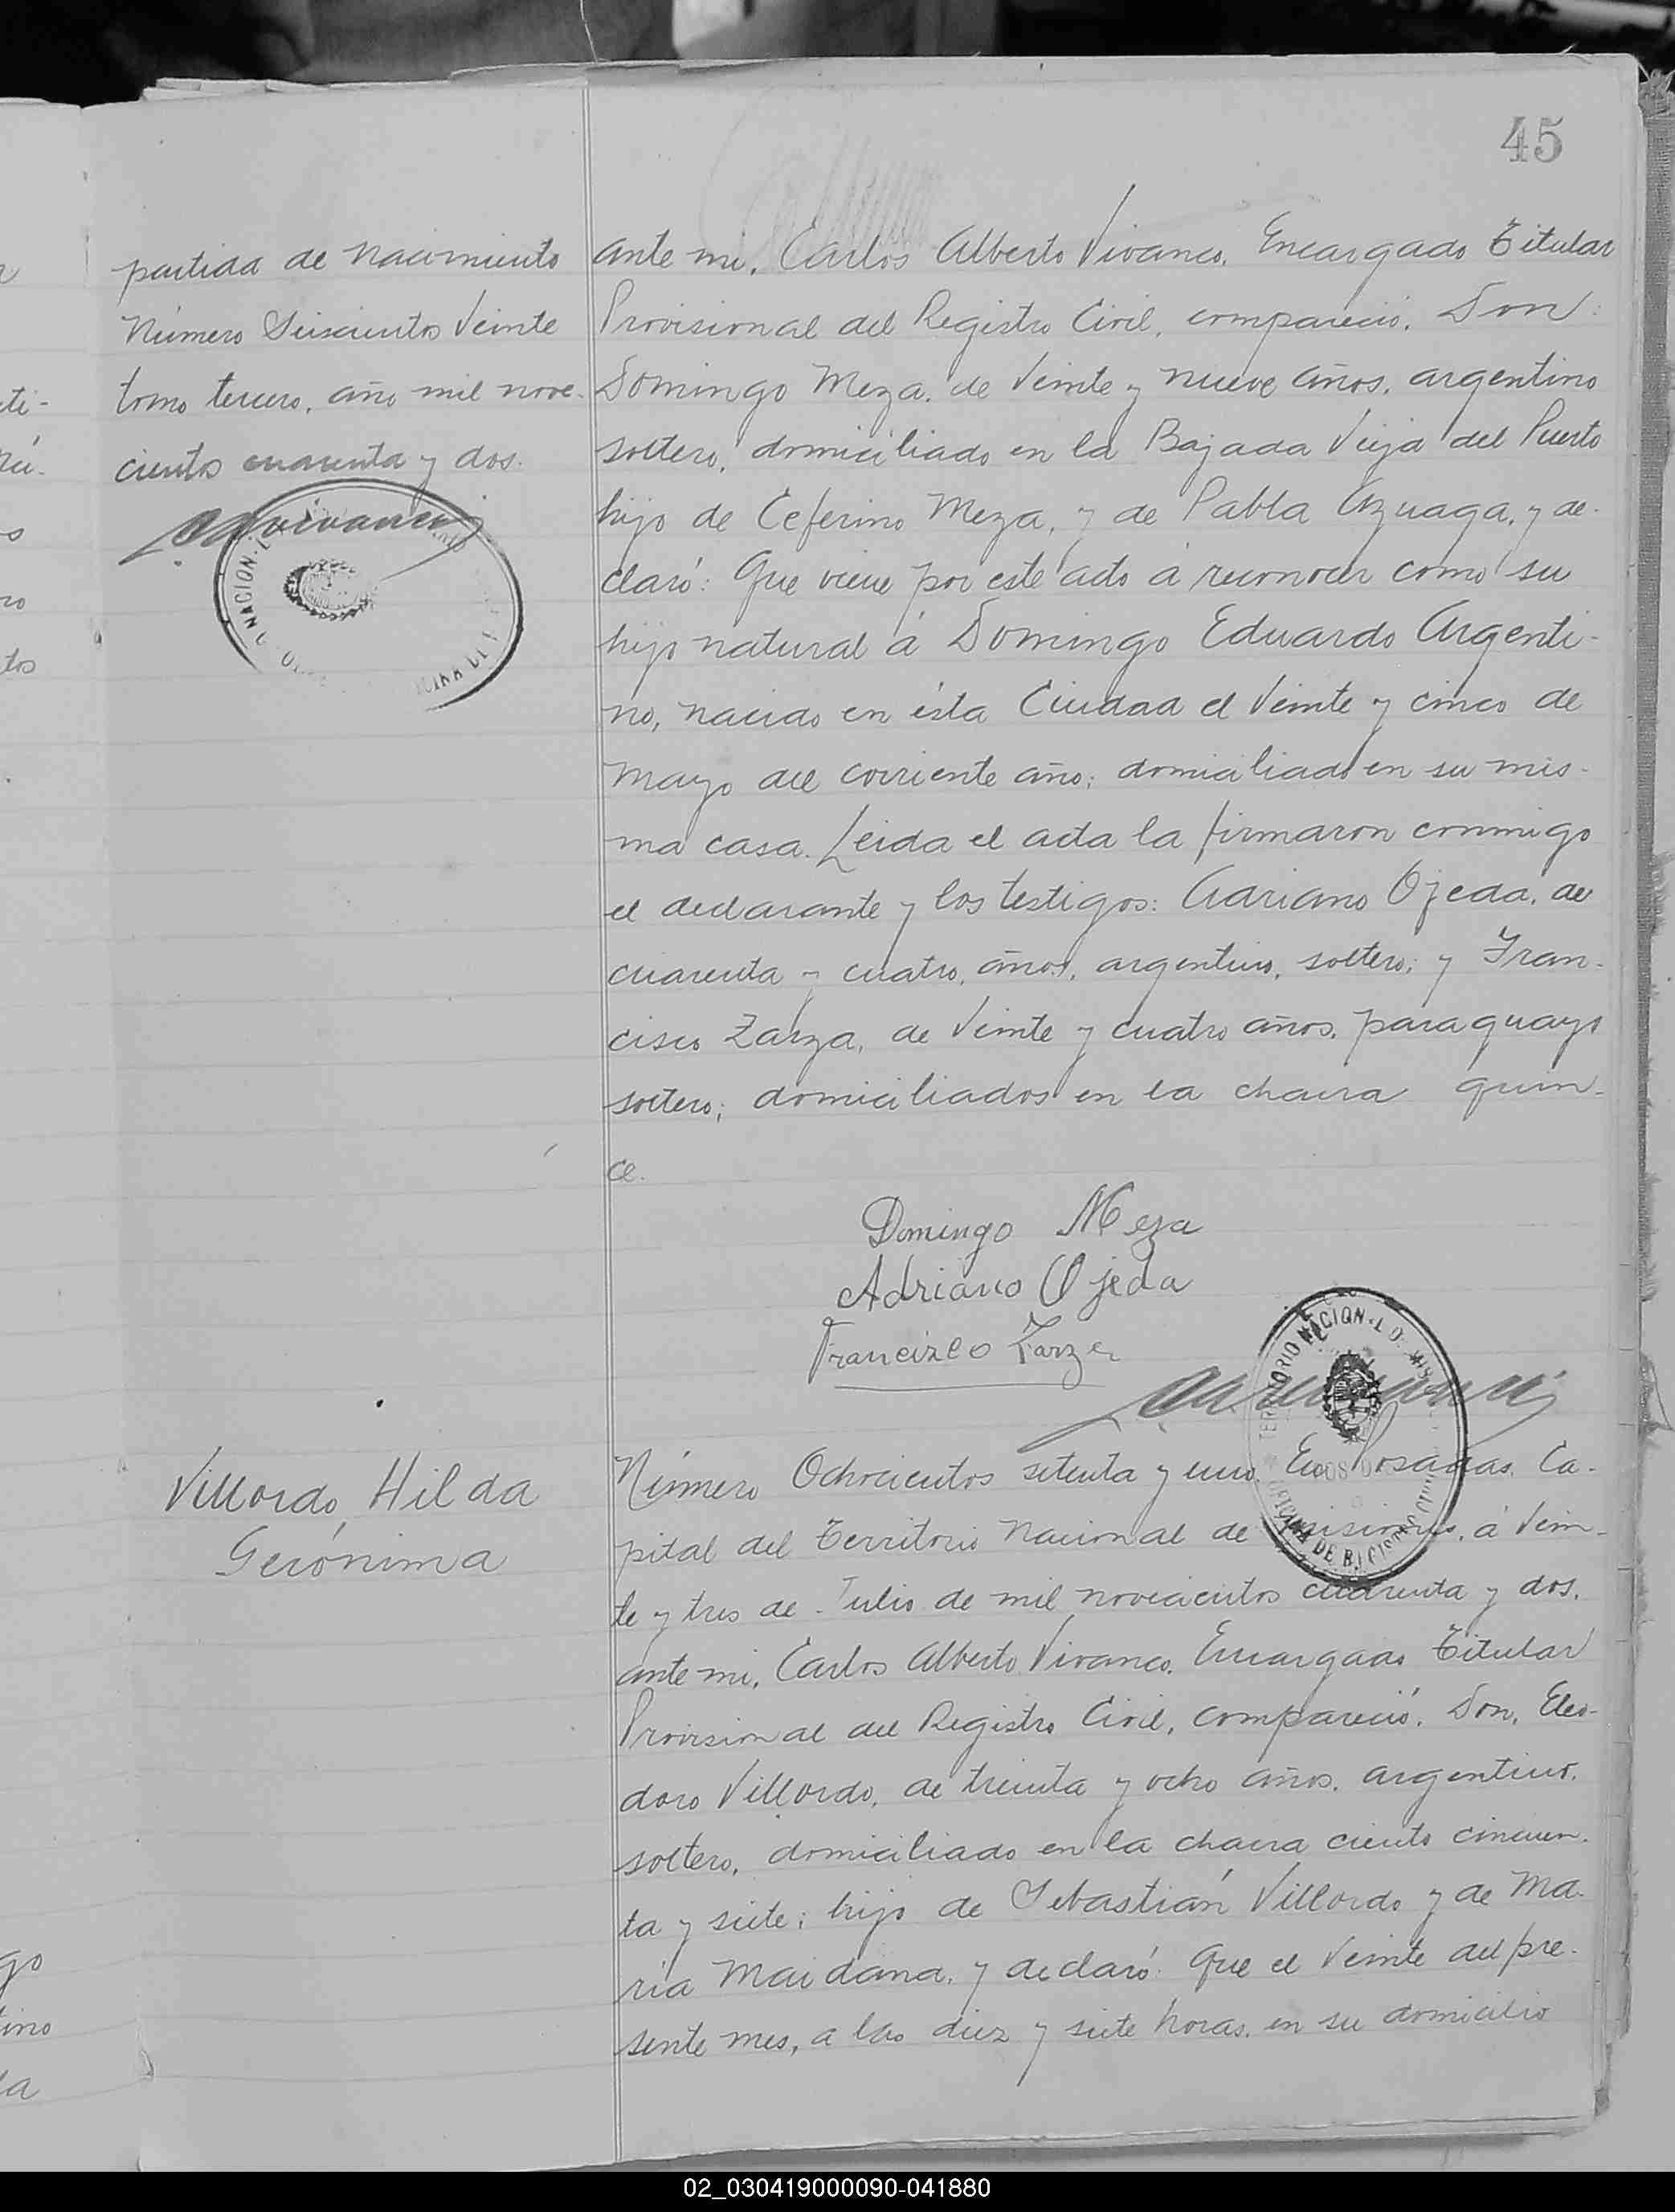 45
partida de nacimiento
Número Seiscientos Veinte
tomo tercero, año mil nove-
cientos cuarenta y dos.
ante mi, Carlos Alberto Vivanco, Encargado Titular
Provisional del Registro Civil, compareció, Don:
Domingo Meza, de Veinte y nueve años, argentino
soltero, domiciliado en la Bajada Vieja del Puerto
hijo de Ceferino Meza, y de Pabla Azuaga, y de-
claró: Que viene por este acto á reconocer como su
hijo natural á Domingo Eduardo Argenti-
no, nacido en ésta Ciudad el Veinte y cinco de
Mayo del corriente año; domiciliado en su mis-
ma casa. Leida el acta la firmaron conmigo
el declarante y los testigos: Adriano Ojeda, de
cuarenta y cuatro, años, argentino, soltero; y Fran-
cisco Zarza, de Veinte y cuatro años, paraguayo
soltero; domiciliados en la chacra quin-
ce.
Domingo Meza
Adriano Ojeda
Francizco Zarza
Villordo, Hilda
Gerónima
Número Ochocientos setenta y uno. En Posadas, Ca-
pital del Territorio Nacional de Misiones, á Vein-
te y tres de Julio de mil novecientos cuarenta y dos,
ante mi, Carlos Alberto Vivanco, Encargado Titular
Provisional del Registro Civil, compareció, Don, Eleo-
doro Villordo, de treinta y ocho años, argentino,
soltero, domiciliado en la chacra ciento cincuen-
ta y siete; hijo de Sebastián Villordo y de Ma-
ria Maidana, y declaró: Que el Veinte del pre-
sente mes, a las diez y siete horas, en su domicilio
02_030419000090-041880